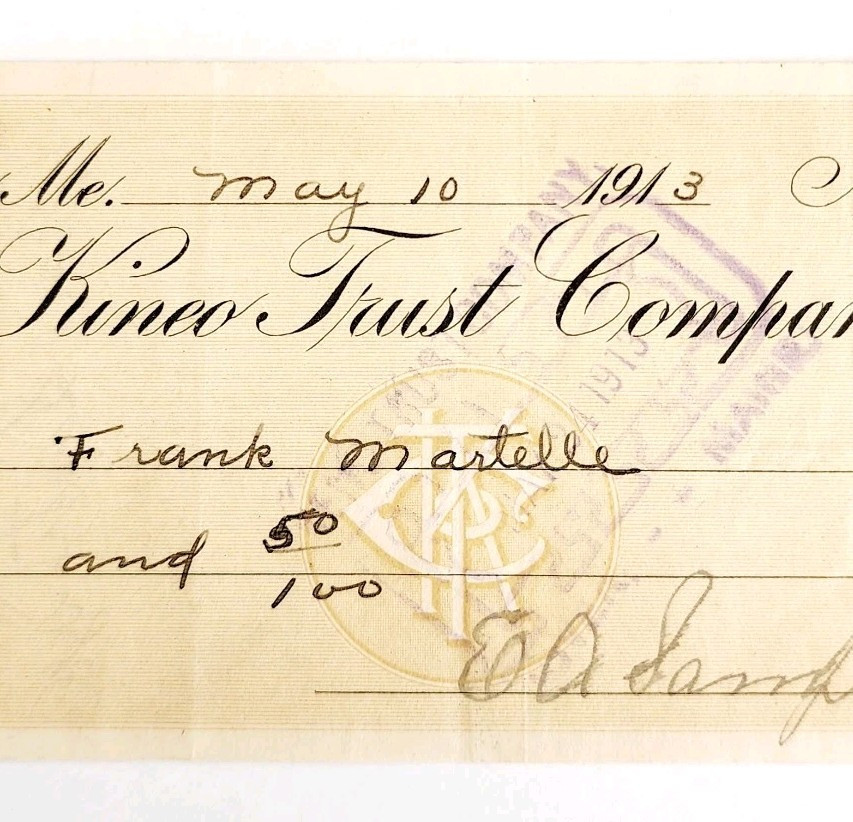 Me. May 10 1913
Kineo Trust Compan
Frank Martelle
and 50/100
E A Samp
1913